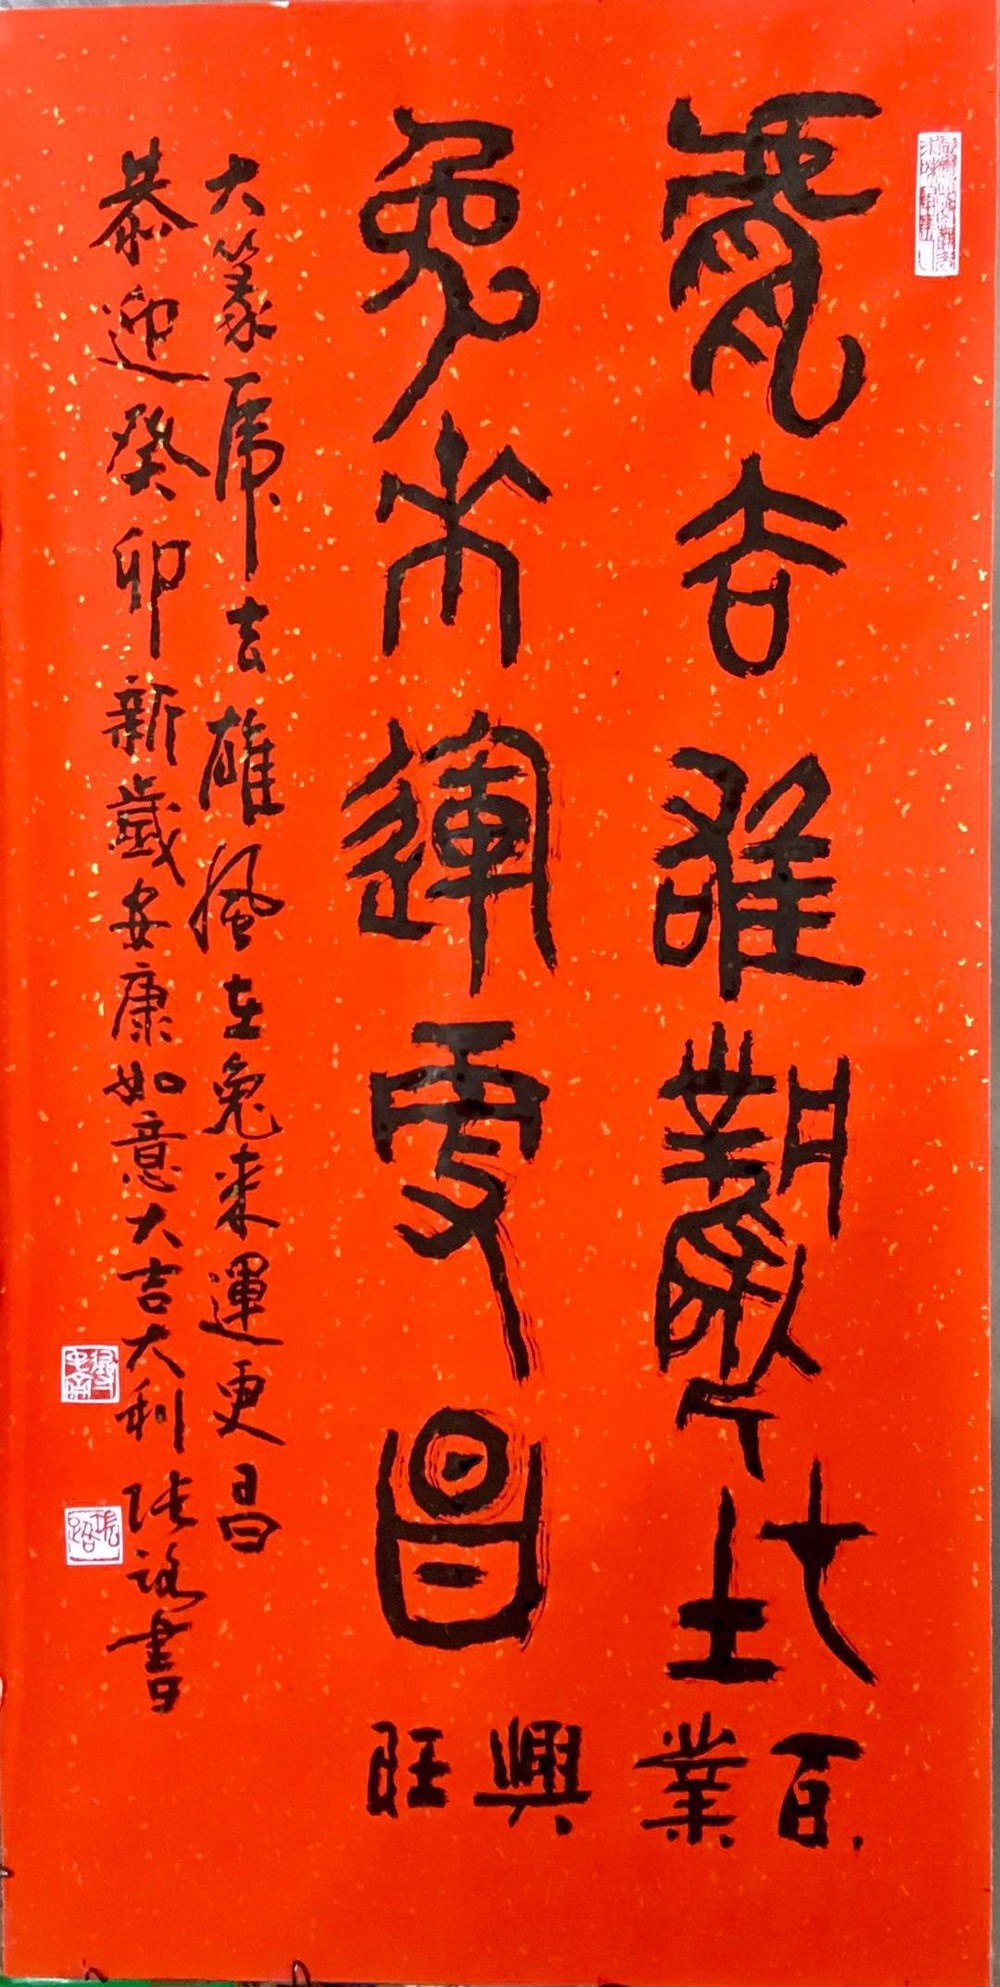 虎去雄風在
兔來運更昌
百業興旺
大篆虎去雄風在兔來運更昌
恭迎癸卯新歲安康如意大吉大利张路書